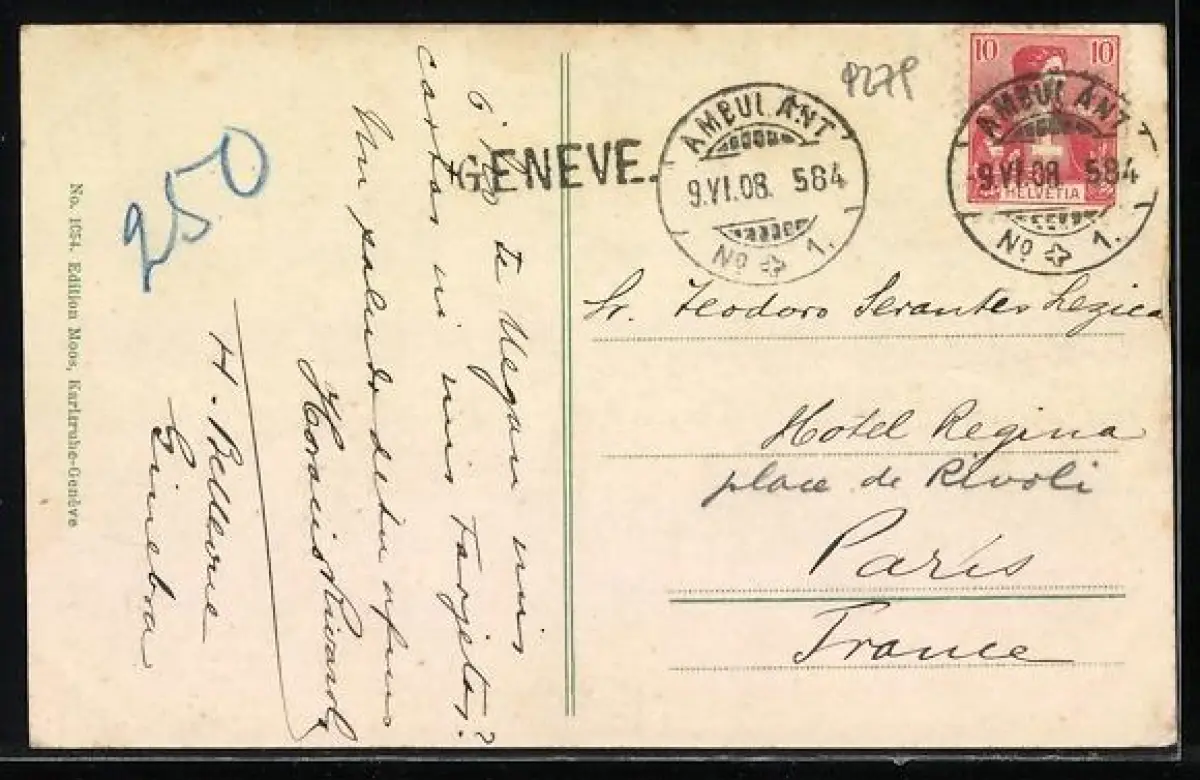 9279
10 10
HELVETIA
AMBULANT
9.VI.08. 584
No 1.
AMBULANT
9.VI.08. 584
No 1.
GENEVE.
Sr. Teodoro Serantes Lezica
Hotel Regina
place de Rivoli
Paris
France
te llegan mis
cartas ni mis tarjetas?
Un saludo de tu afmo
H. Bellevue
Ginebra
250
No. 1054. Edition Moos, Karlsruhe-Genève